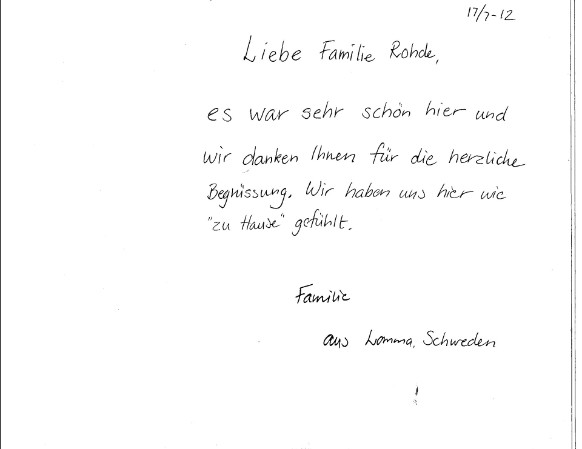 17/7-12
Liebe Familie Rohde,
es war sehr schön hier und
wir danken Ihnen für die herzliche
Begrüssung. Wir haben uns hier wie
"zu Hause" gefühlt.
Familie
aus Lomma, Schweden